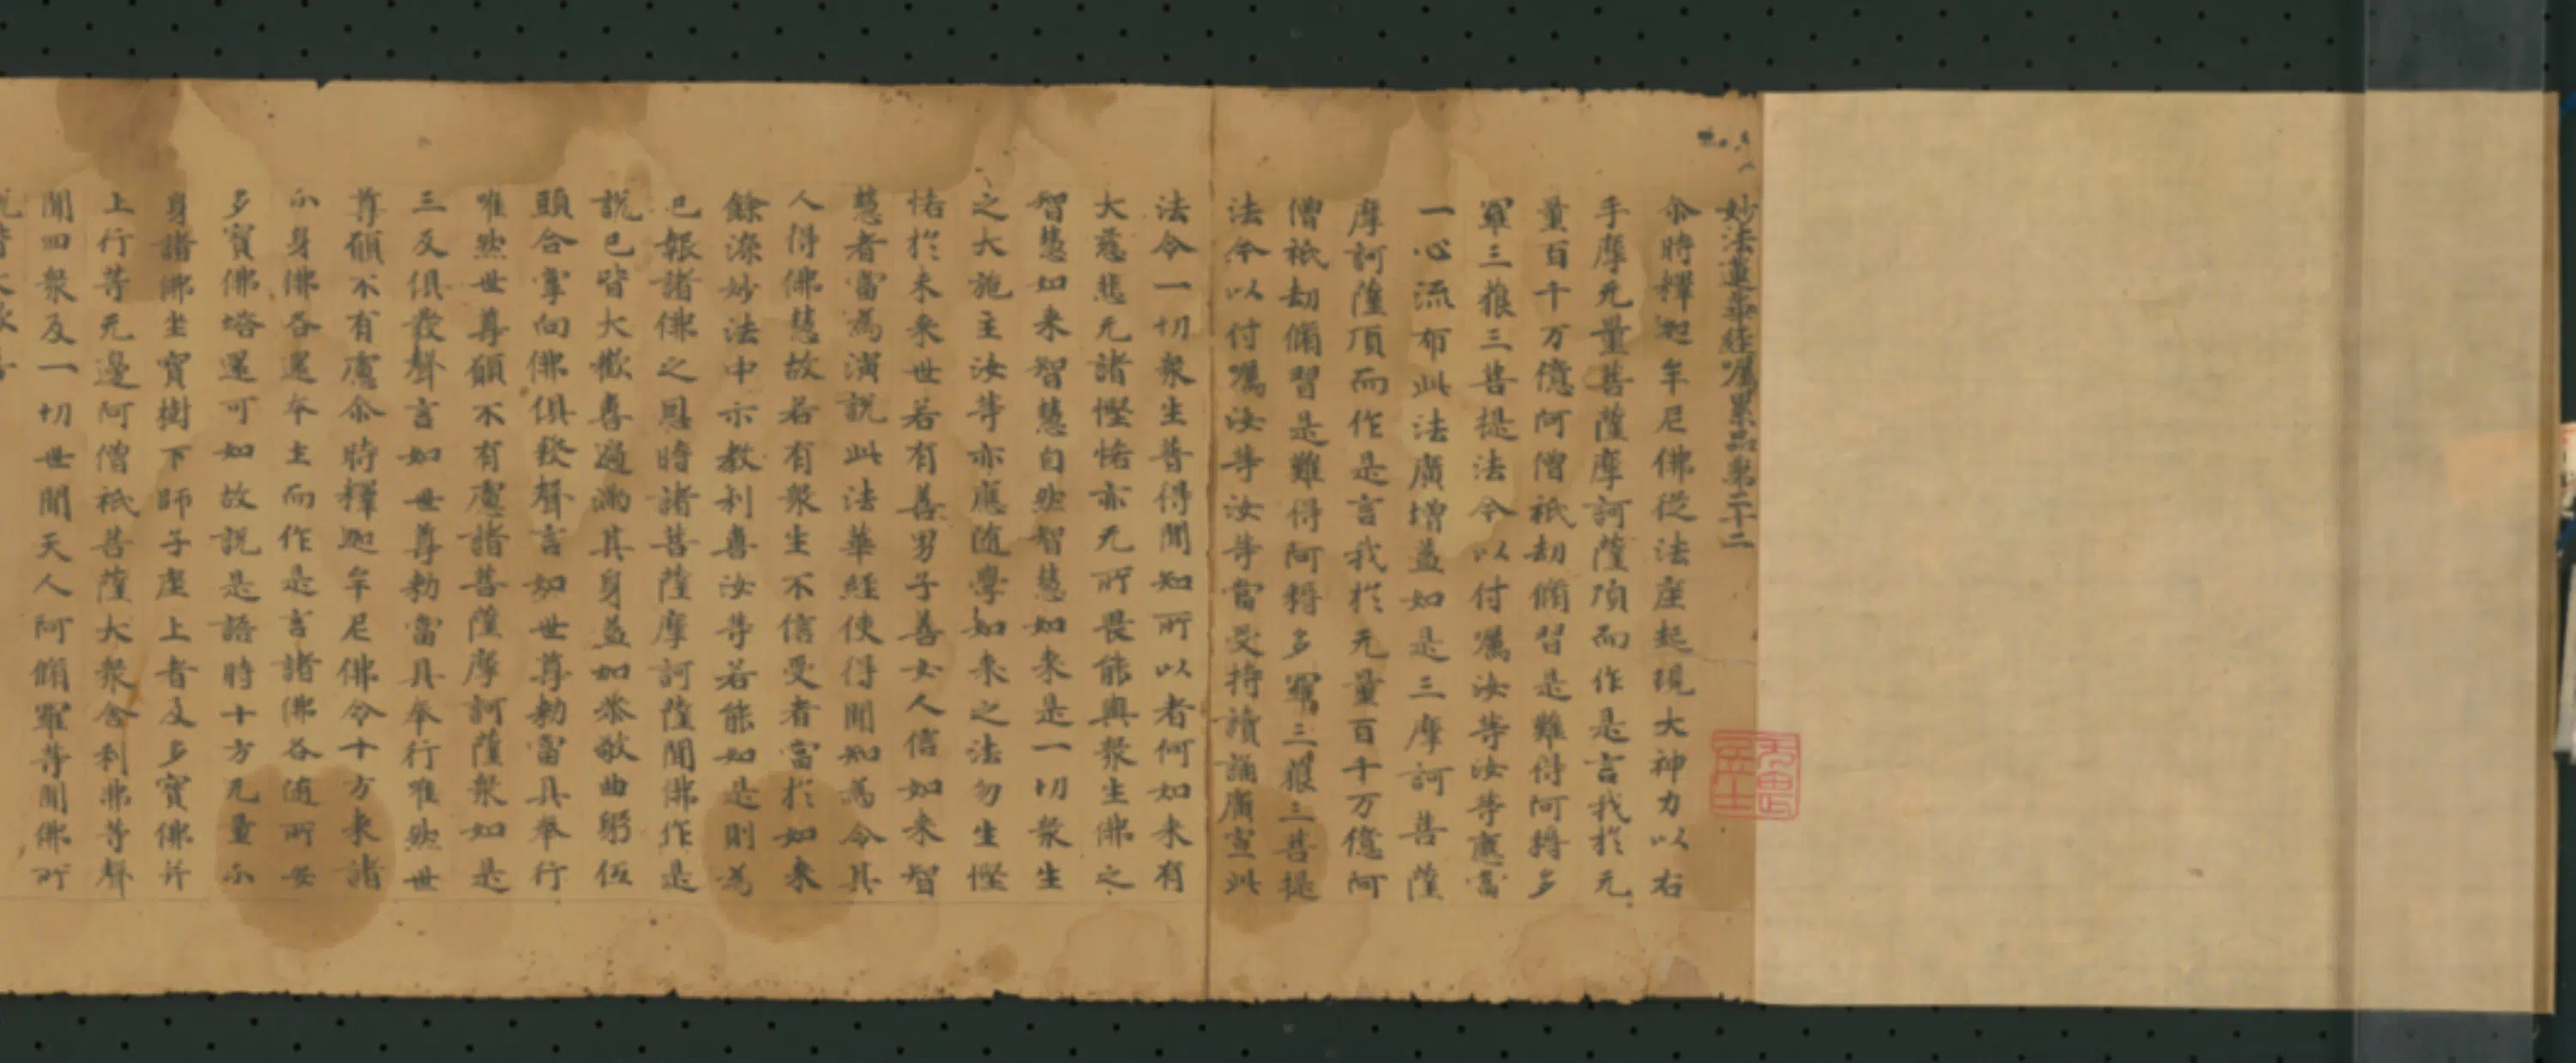 妙法蓮華經囑累品第二十二
尒時釋迦牟尼佛從法座起現大神力以右
手摩无量菩薩摩訶薩頂而作是言我於无
量百千万億阿僧祇劫脩習是難得阿耨多
羅三藐三菩提法今以付囑汝等汝等應當
一心流布此法廣增益如是三摩訶菩薩
摩訶薩頂而作是言我於无量百千万億阿
僧祇劫脩習是難得阿耨多羅三藐三菩提
法今以付囑汝等汝等當受持讀誦廣宣此
法令一切衆生普得聞知所以者何如来有
大慈悲无諸慳悋亦无所畏能與衆生佛之
智慧如来智慧自然智慧如来是一切衆生
之大施主汝等亦應随學如来之法勿生慳
悋於未来世若有善男子善女人信如来智
慧者當為演說此法華經使得聞知為令其
人得佛慧故若有衆生不信受者當於如来
餘深妙法中示教利喜汝等若能如是則為
已報諸佛之恩時諸菩薩摩訶薩聞佛作是
說已皆大歡喜遍滿其身益加恭敬曲躬伍
頭合掌向佛俱發聲言如世尊勑當具奉行
唯然世尊願不有慮諸菩薩摩訶薩衆如是
三反俱發聲言如世尊勑當具奉行唯然世
尊願不有慮尒時釋迦牟尼佛令十方来諸
分身佛各還本土而作是言諸佛各随所安
多寶佛塔還可如故說是語時十方无量分
身諸佛坐寶樹下師子座上者及多寶佛并
上行等无邊阿僧祇菩薩大衆舍利弗等聲
聞四衆及一切世間天人阿脩羅等聞佛所
說皆大歡喜